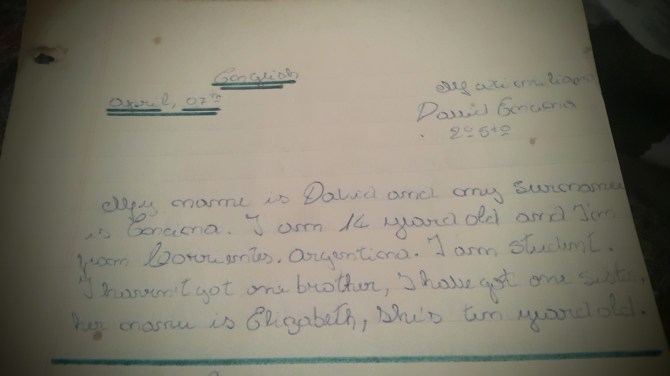 English
April, 07th
Maximiliano
David Encina
2º 5tº
My name is David and my surname
is Encina. I am 14 yeard old and I'm
from Corrientes, Argentina. I am student.
I haven't got one brother, I have got one siste
her name is Elizabeth, she's ten yeard old.